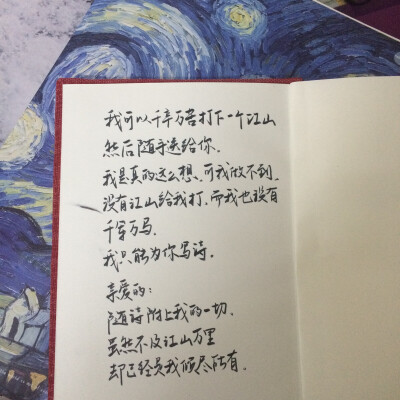 我可以千辛万苦打下一个江山
然后随手送给你.
我是真的这么想、可我做不到.
没有江山给我打.而我也没有
千军万马.
我只能为你写诗.
亲爱的：
随诗附上我的一切.
虽然不及江山万里
却已经是我倾尽所有.